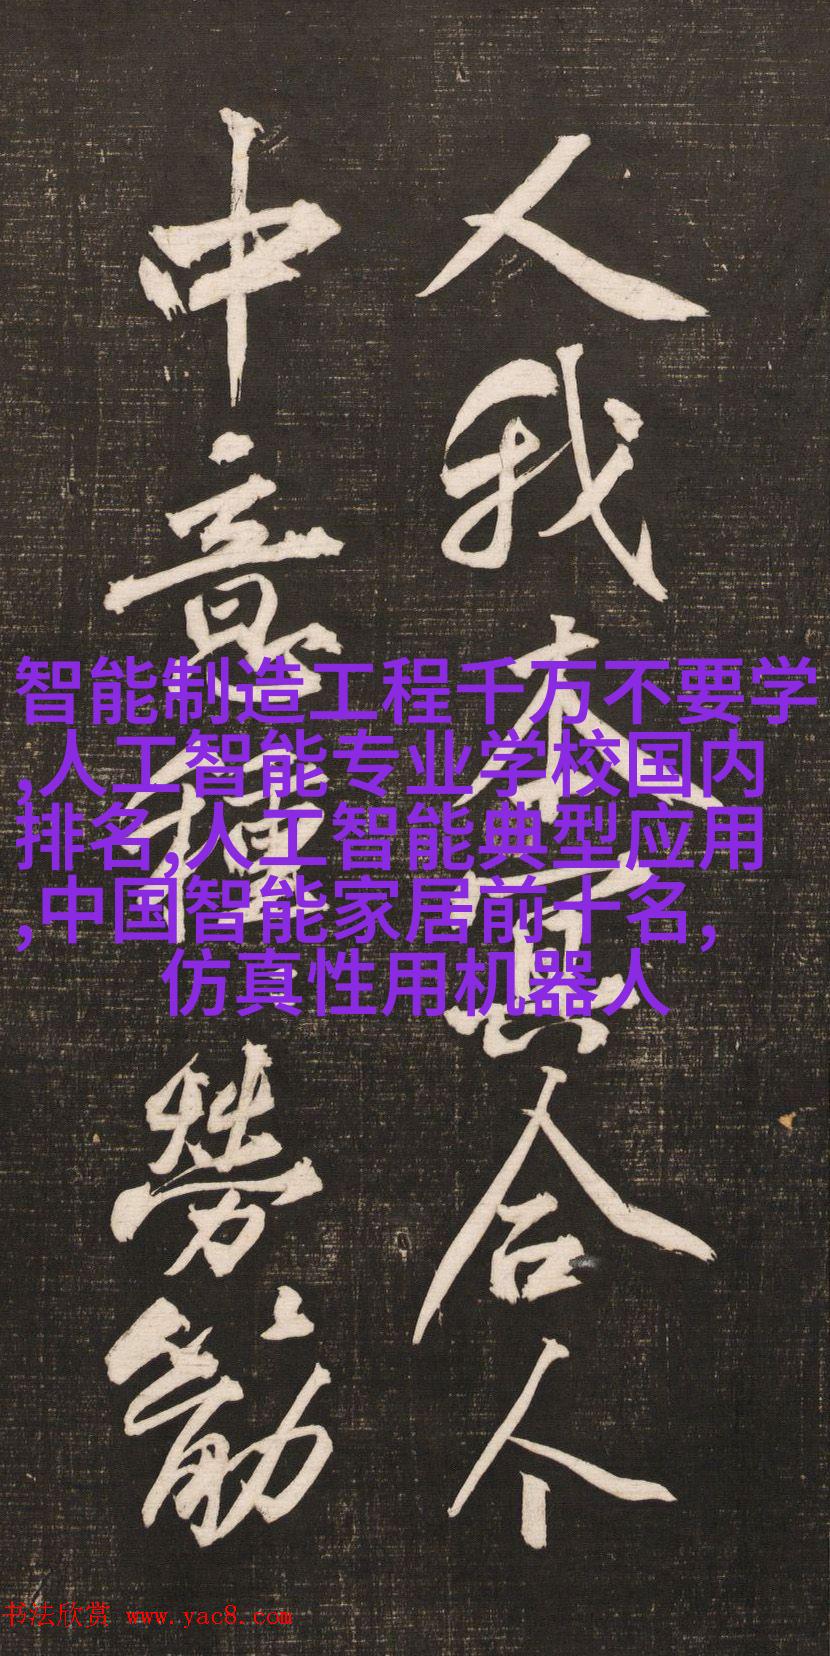 人我本合个
中意種勞筋
智能制造工程千万不要学
,人工智能专业学校国内
排名,人工智能典型应用
,中国智能家居前十名,
仿真性用机器人
书法欣赏 www.yac8.com